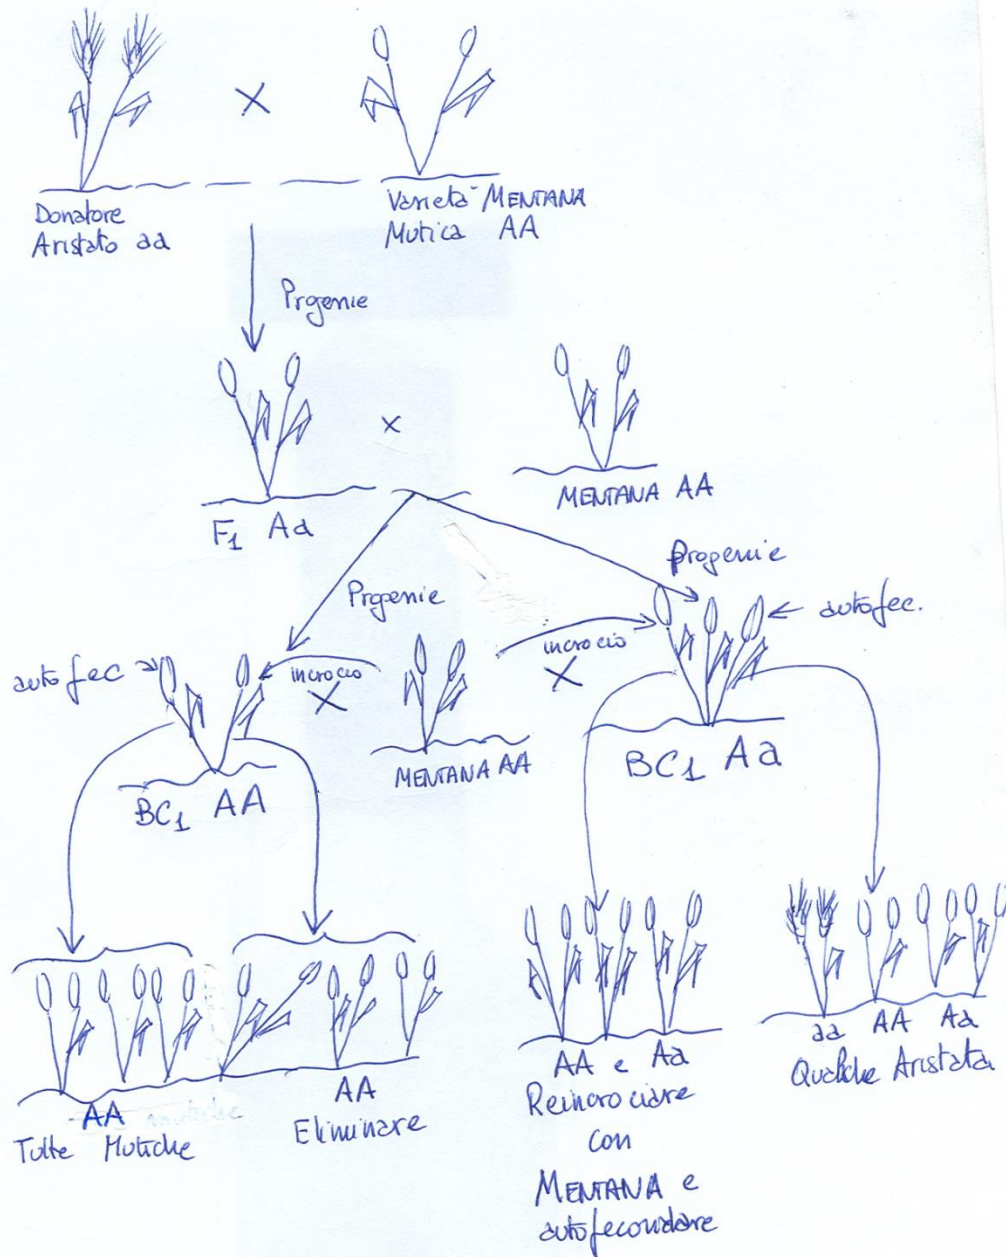 X
Donatore
Aristato aa
Varietà MENTANA
Mutica AA
Progenie
x
F1 Aa
MENTANA AA
Progenie
Progenie
autofec
incrocio
X
incrocio
X
autofec.
BC1 AA
MENTANA AA
BC1 Aa
AA mutiche
Tutte Mutiche
AA
Eliminare
AA e Aa
Reincrociare
con
MENTANA e
autofecondare
aa AA Aa
Qualche Aristata